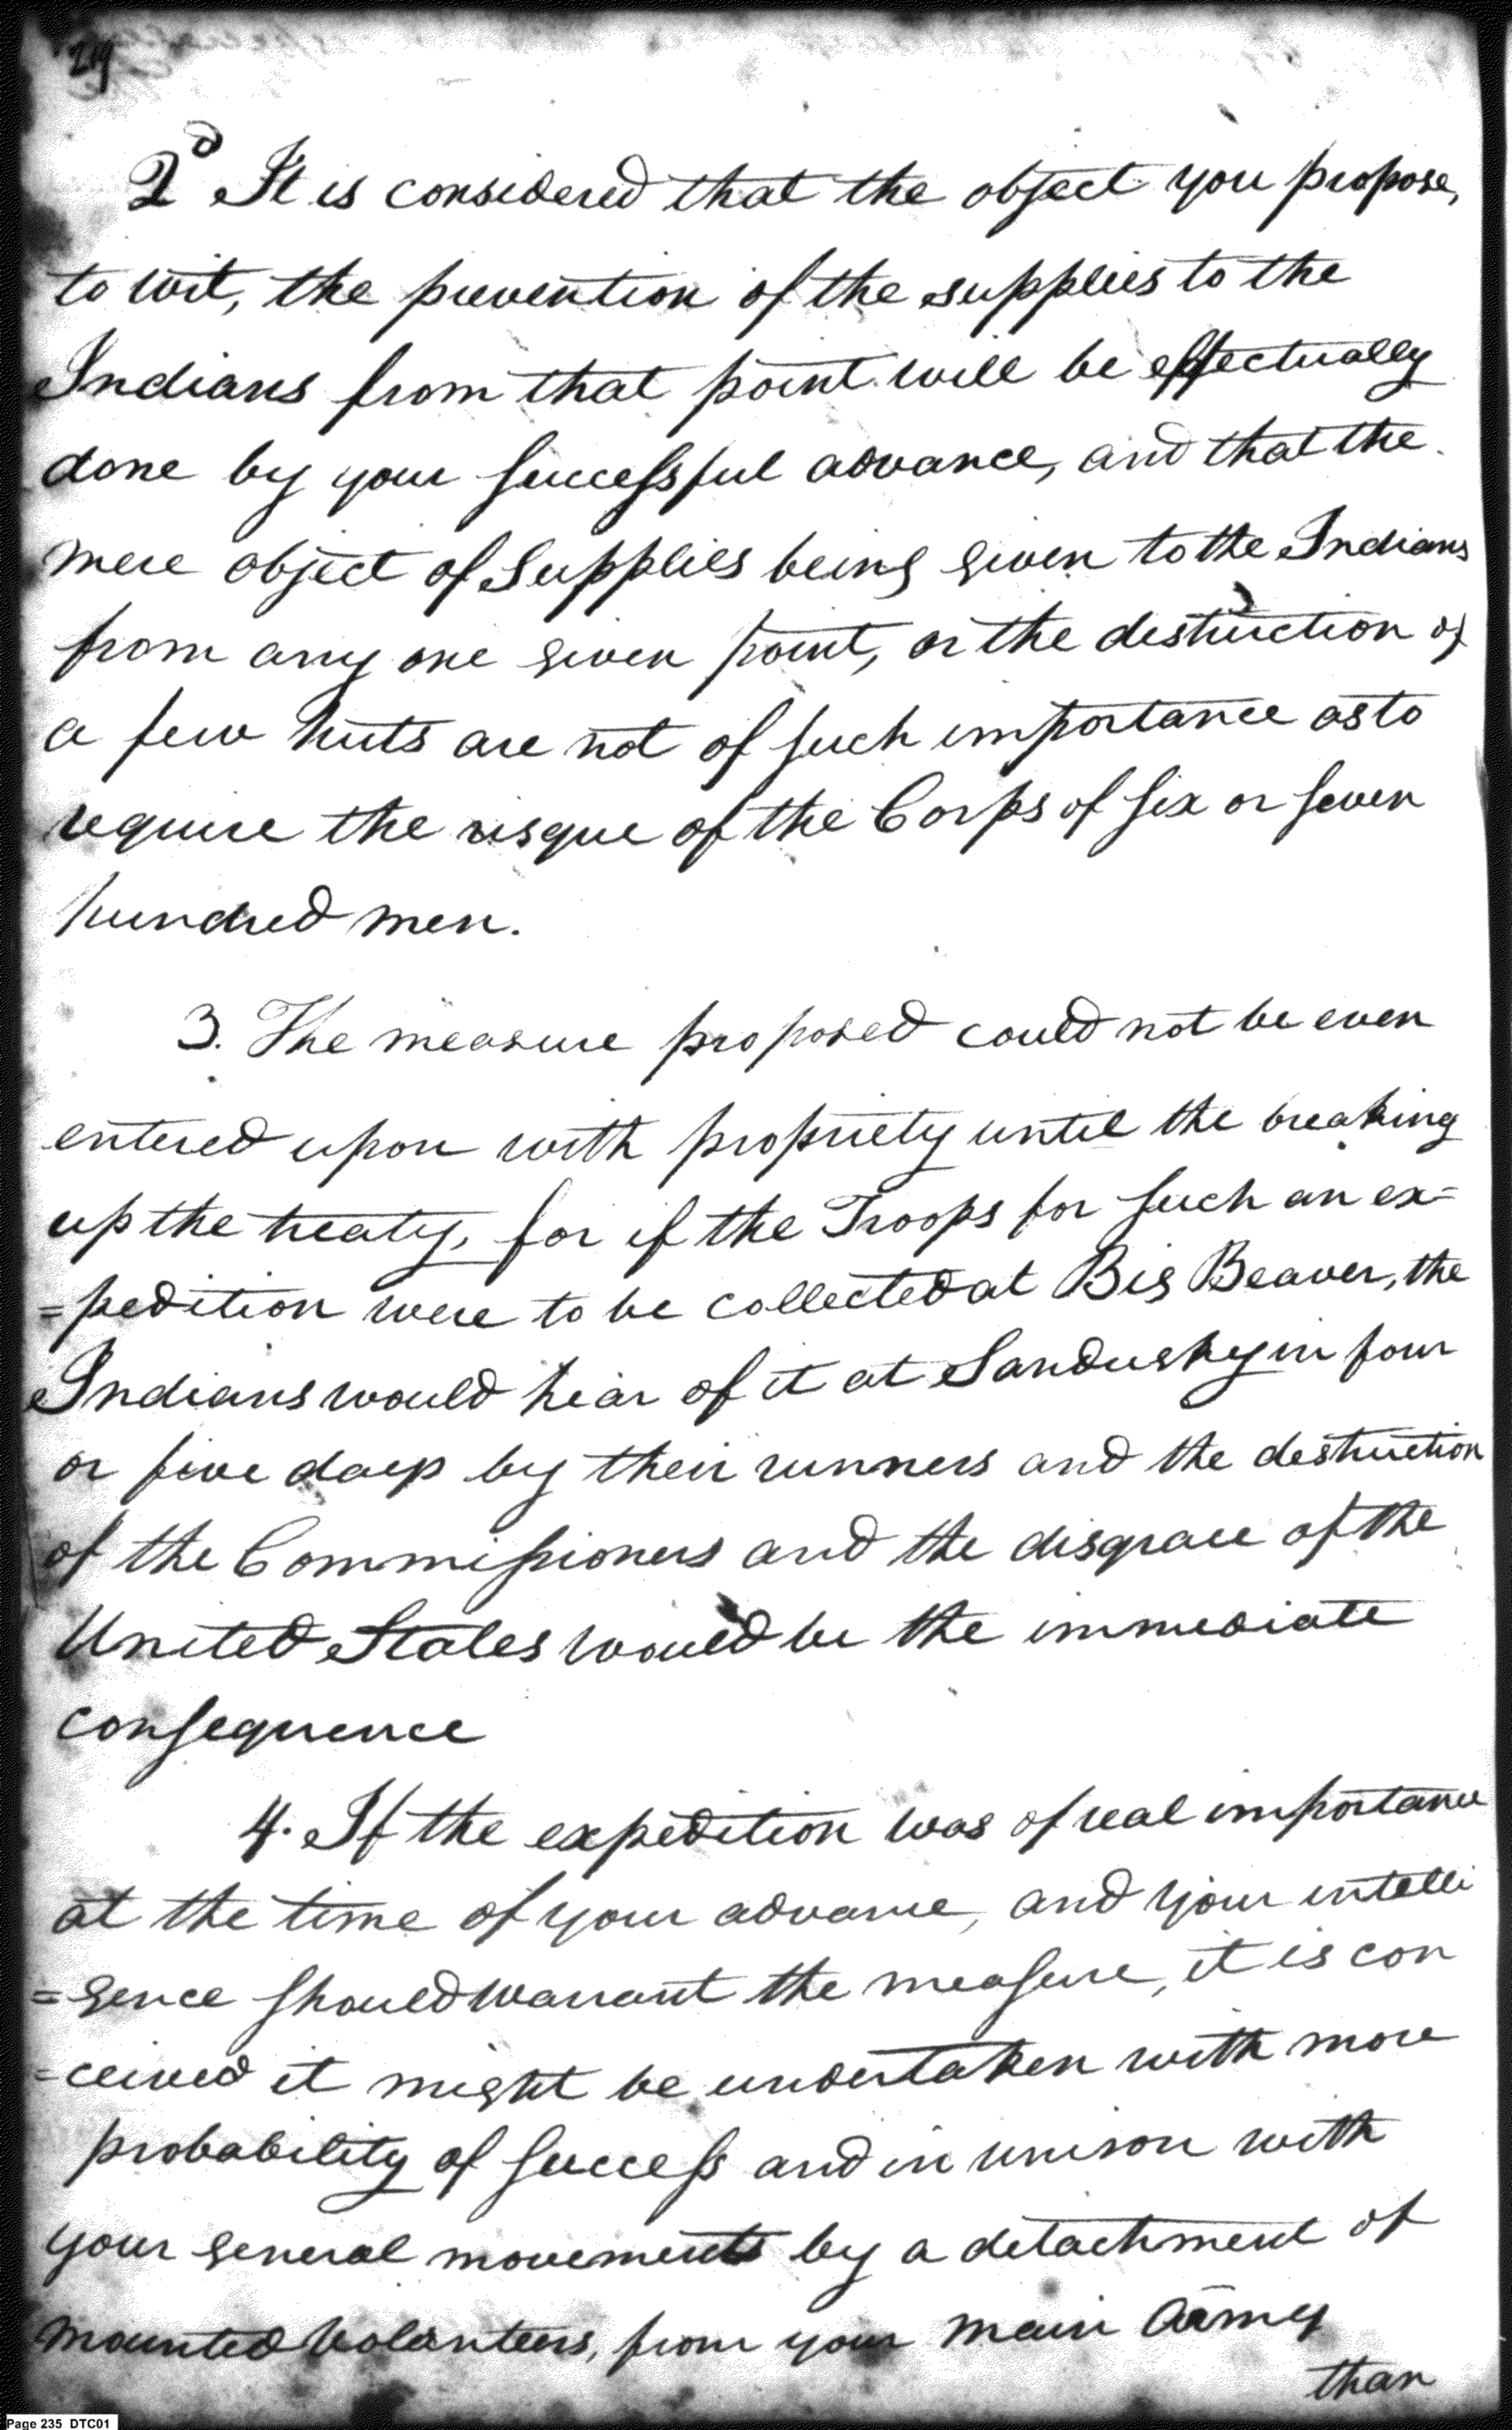 219
2d It is considered that the object you propose,
to wit, the prevention of the supplies to the
Indians from that point will be effectually
done by your successful advance, and that the
mere object of Supplies being given to the Indians
from any one given point, or the destruction of
a few huts are not of such importance as to
require the risque of the Corps of six or seven
hundred men.
3. The measure proposed could not be even
entered upon with propriety until the breaking
up the treaty, for if the Troops for such an ex=
=pedition were to be collected at Big Beaver, the
Indians would hear of it at Sandusky in four
or five days by their runners and the destruction
of the Commissioners and the disgrace of the
United States would be the immediate
consequence
4. If the expedition was of real importance
at the time of your advance, and your intelli
=gence should warrant the measure, it is con
=ceived it might be undertaken with more
probability of success and in unison with
your general movements by a detachment of
mounted Volunteers, from your main Army
than
Page 235 DTC01